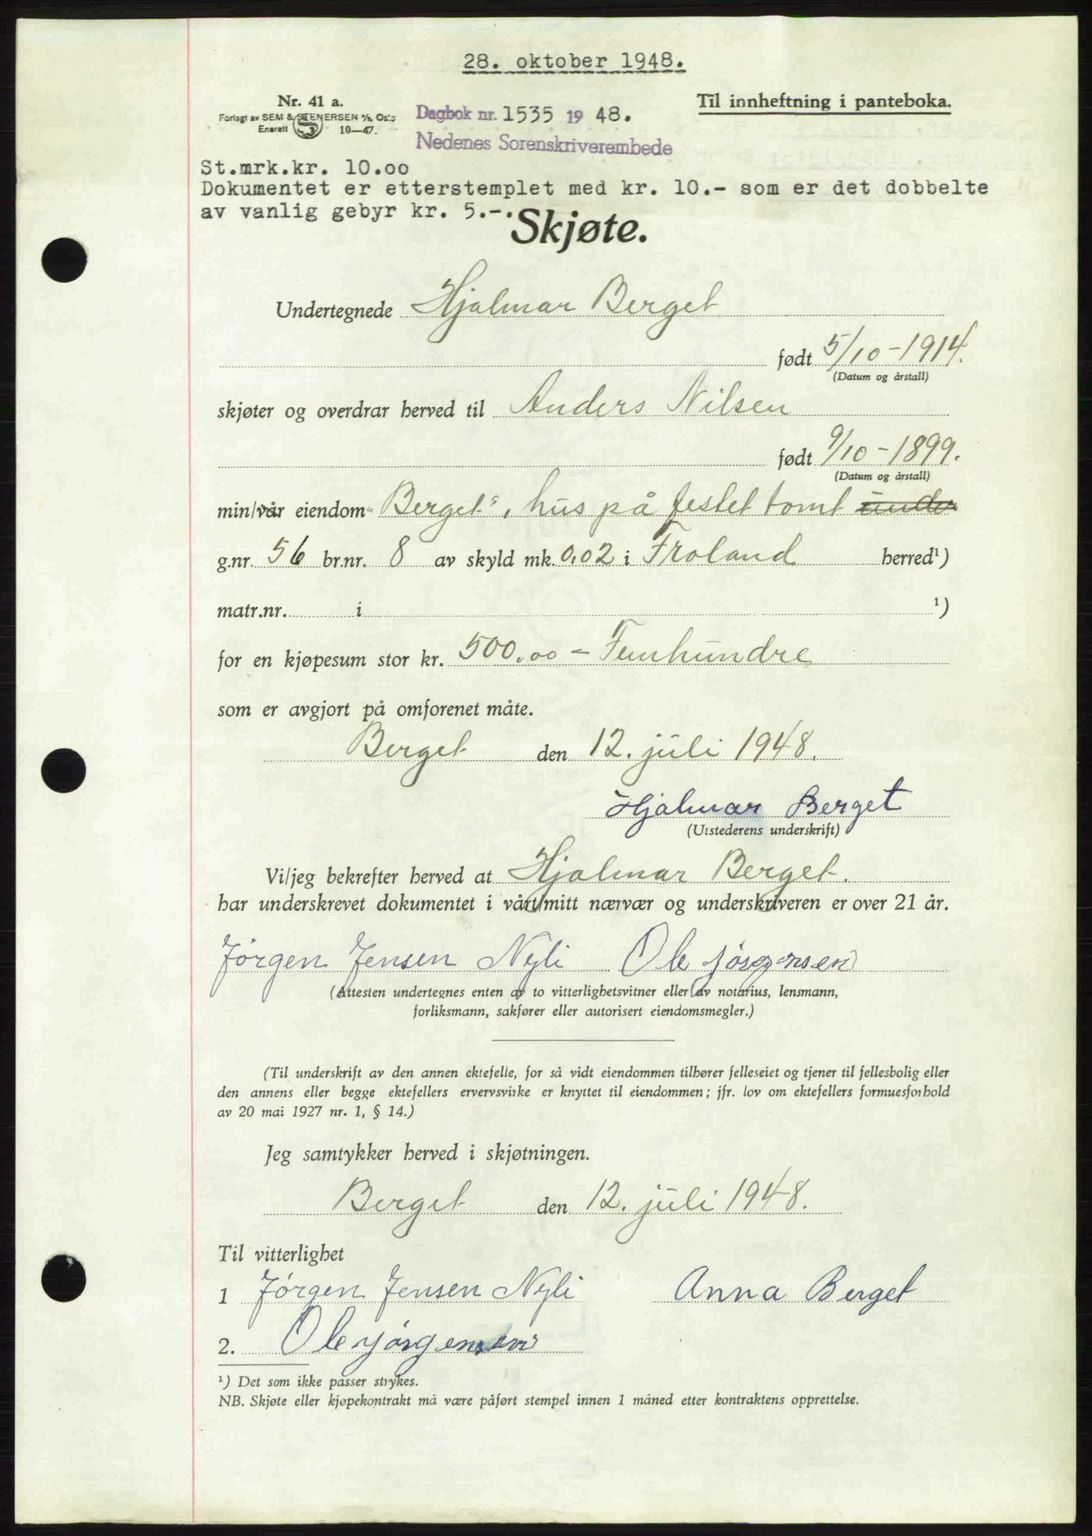 28. oktober 1948.
Nr. 41 a.
Forlagt av SEM & STENERSEN A/S, Oslo
Enerett 10—47.
Dagbok nr. 1535 19 48.
Nedenes Sorenskriverembede
Til innheftning i panteboka.
St.mrk.kr. 10.00
Dokumentet er etterstemplet med kr. 10.- som er det dobbelte
av vanlig gebyr kr. 5.-.
Skjøte.
Undertegnede Hjalmar Berget
født 5/10 - 1914.
(Datum og årstall)
skjøter og overdrar herved til Anders Nilsen
født 9/10 - 1899.
(Datum og årstall)
min/vår eiendom "Berget", hus på festet tomt unde
g.nr. 56 br.nr. 8 av skyld mk. 0,02 i Froland herred¹)
matr.nr. i ¹)
for en kjøpesum stor kr. 500,00 - Femhundre
som er avgjort på omforenet måte.
Berget den 12. juli 1948.
Hjalmar Berget
(Utstederens underskrift)
Vi/jeg bekrefter herved at Hjalmar Berget.
har underskrevet dokumentet i vårt/mitt nærvær og underskriveren er over 21 år.
Jørgen Jensen Nyli Ole Jørgensen
(Attesten undertegnes enten av to vitterlighetsvitner eller av notarius, lensmann,
forliksmann, sakfører eller autorisert eiendomsmegler.)
(Til underskrift av den annen ektefelle, for så vidt eiendommen tilhører felleseiet og tjener til fellesbolig eller
den annens eller begge ektefellers ervervsvirke er knyttet til eiendommen; jfr. lov om ektefellers formuesforhold
av 20 mai 1927 nr. 1, § 14.)
Jeg samtykker herved i skjøtningen.
Berget den 12. juli 1948.
Til vitterlighet
1 Jørgen Jensen Nyli Anna Berget
2. Ole Jørgensen
¹) Det som ikke passer strykes.
NB. Skjøte eller kjøpekontrakt må være påført stempel innen 1 måned etter kontraktens opprettelse.